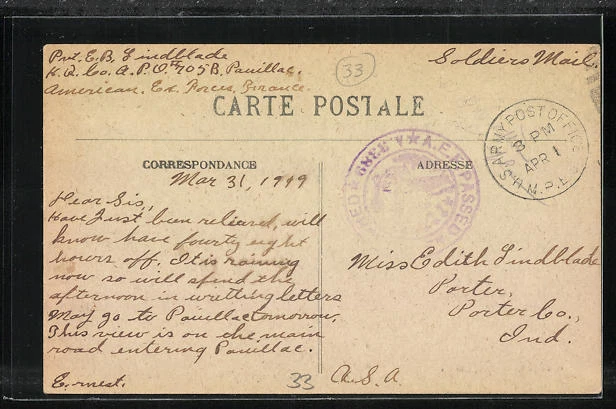 Pvt. E.B. Lindblade
H.Q. Co. A.P.O. #705B, Pauillac,
American. Ex. Forces, France.
33
Soldiers Mail.
CARTE POSTALE
ARMY POST OFFICE
3 PM
APR 1
S.H.M.P.E.
A.E.F. PASSED
CORRESPONDANCE
ADRESSE
Mar 31, 1919
Dear Sis.,
Have Just been relieved, will
know have fourty eight
hours off. It is raining
now so will spend the
afternoon in writting letters
May go to Pauillac tomorrow,
This view is on the main
road entering Pauillac.
Ernest.
Miss Edith Lindblade
Porter,
Porter Co.,
Ind.
33
U.S.A.